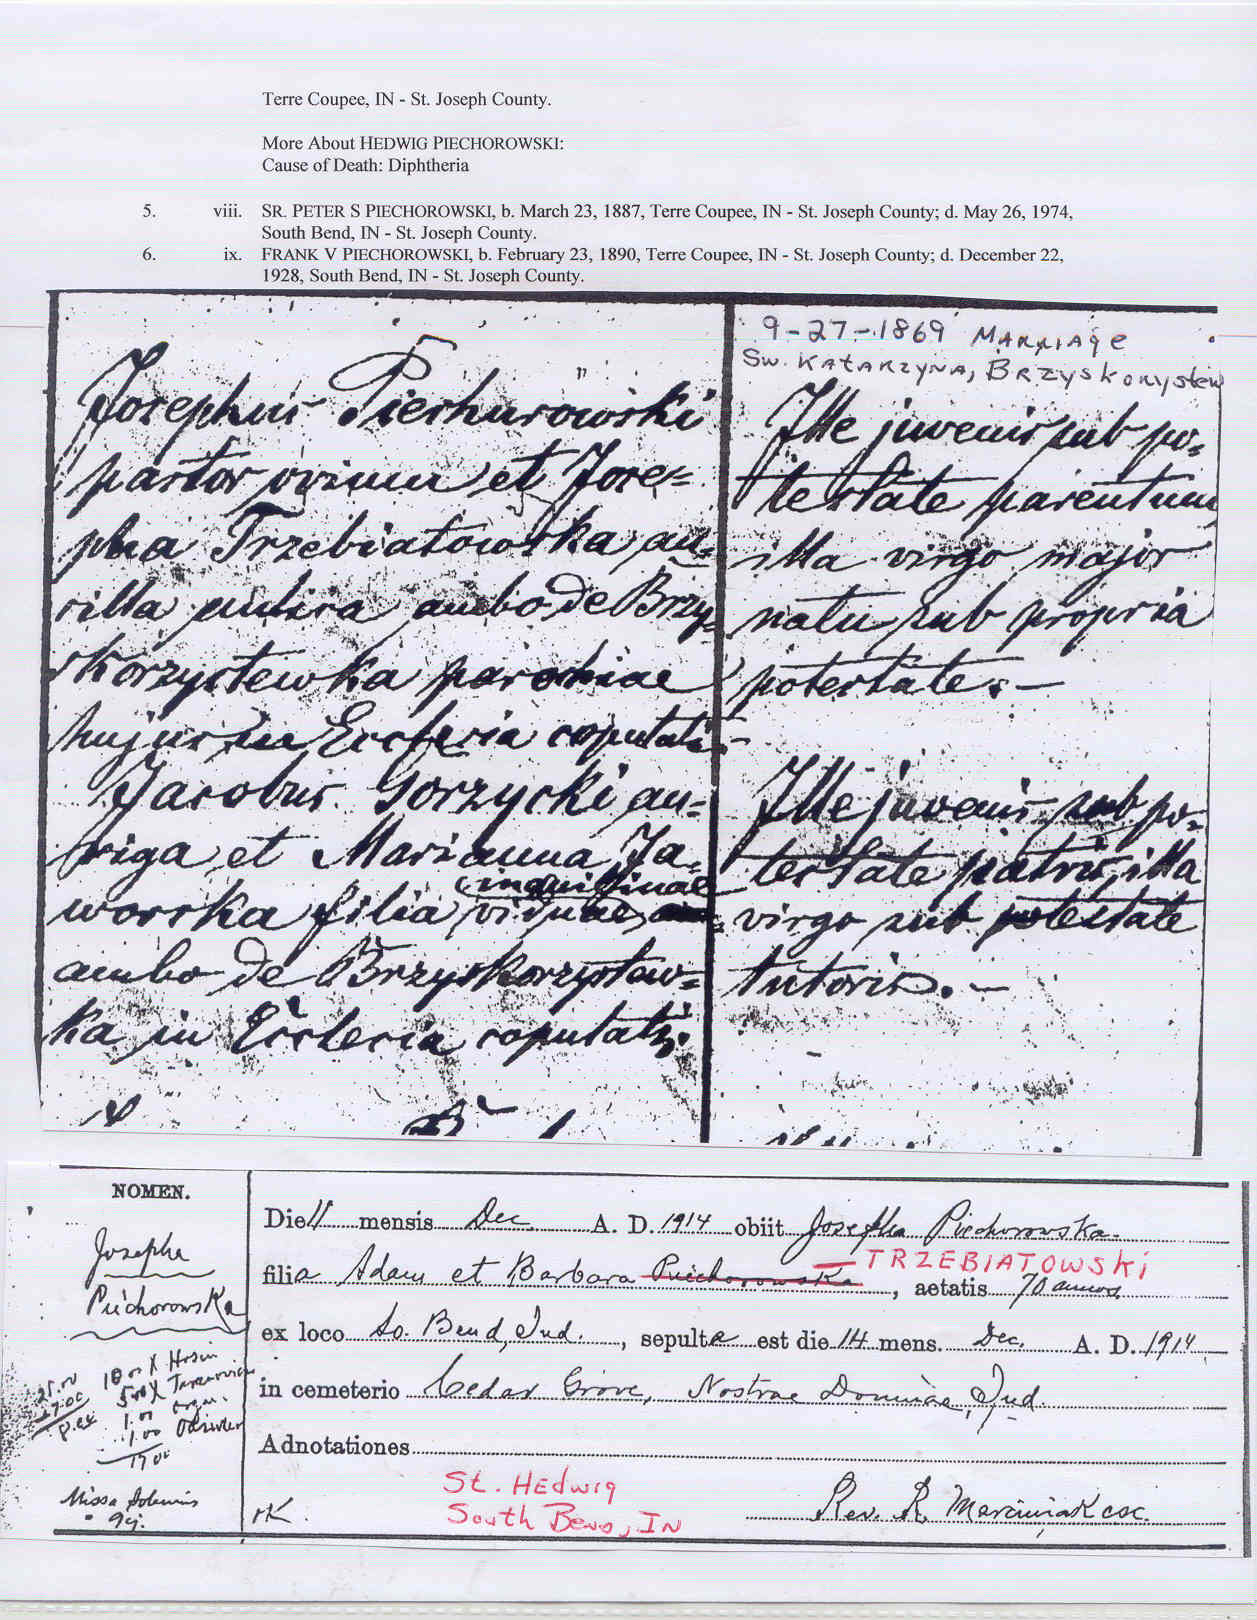 Terre Coupee, IN - St. Joseph County.
More About HEDWIG PIECHOROWSKI:
Cause of Death: Diphtheria
5. viii. SR. PETER S PIECHOROWSKI, b. March 23, 1887, Terre Coupee, IN - St. Joseph County; d. May 26, 1974,
South Bend, IN - St. Joseph County.
6. ix. FRANK V PIECHOROWSKI, b. February 23, 1890, Terre Coupee, IN - St. Joseph County; d. December 22,
1928, South Bend, IN - St. Joseph County.
9-27-1869 MARRIAGE
SW. KATARZYNA, BRZYSKORYSTEW
Josephus Piechurowski
pastor ovium et Jose=
pha Trzebiatowska an=
cilla ambo de Brzy=
skorzystewka parochiae
hujus in Ecclesia copulati
Ille juvenis sub po=
testate parentum
illa virgo major
natu sub propria
potestate.-
Jacobus Gorzycki au=
riga et Marianna Ja=
inquilinae
worska filia viduae
ambo de Brzyskorzystew=
ka in Ecclesia copulati.
Ille juvenis sub po=
testate patris, illa
virgo sub potestate
tutoris.-
NOMEN.
Josepha
Piechorowska
25.00
17.00
8.00
10.00 X
5.00 X
1.00
1.00
17.00
Missa Solemnis
9
Die 11 mensis Dec A. D. 1914 obiit Josepha Piechorowska
TRZEBIATOWSKI
filia Adam et Barbara Piechorowska, aetatis 70 annos.
ex loco So. Bend, Ind., sepulta est die 14 mens. Dec. A. D. 1914
in cemeterio Cedar Grove, Nostrae Dominae, Ind.
Adnotationes
St. HEDWIG
South Bend, IN
MK.
Rev. R. Marciniak csc.